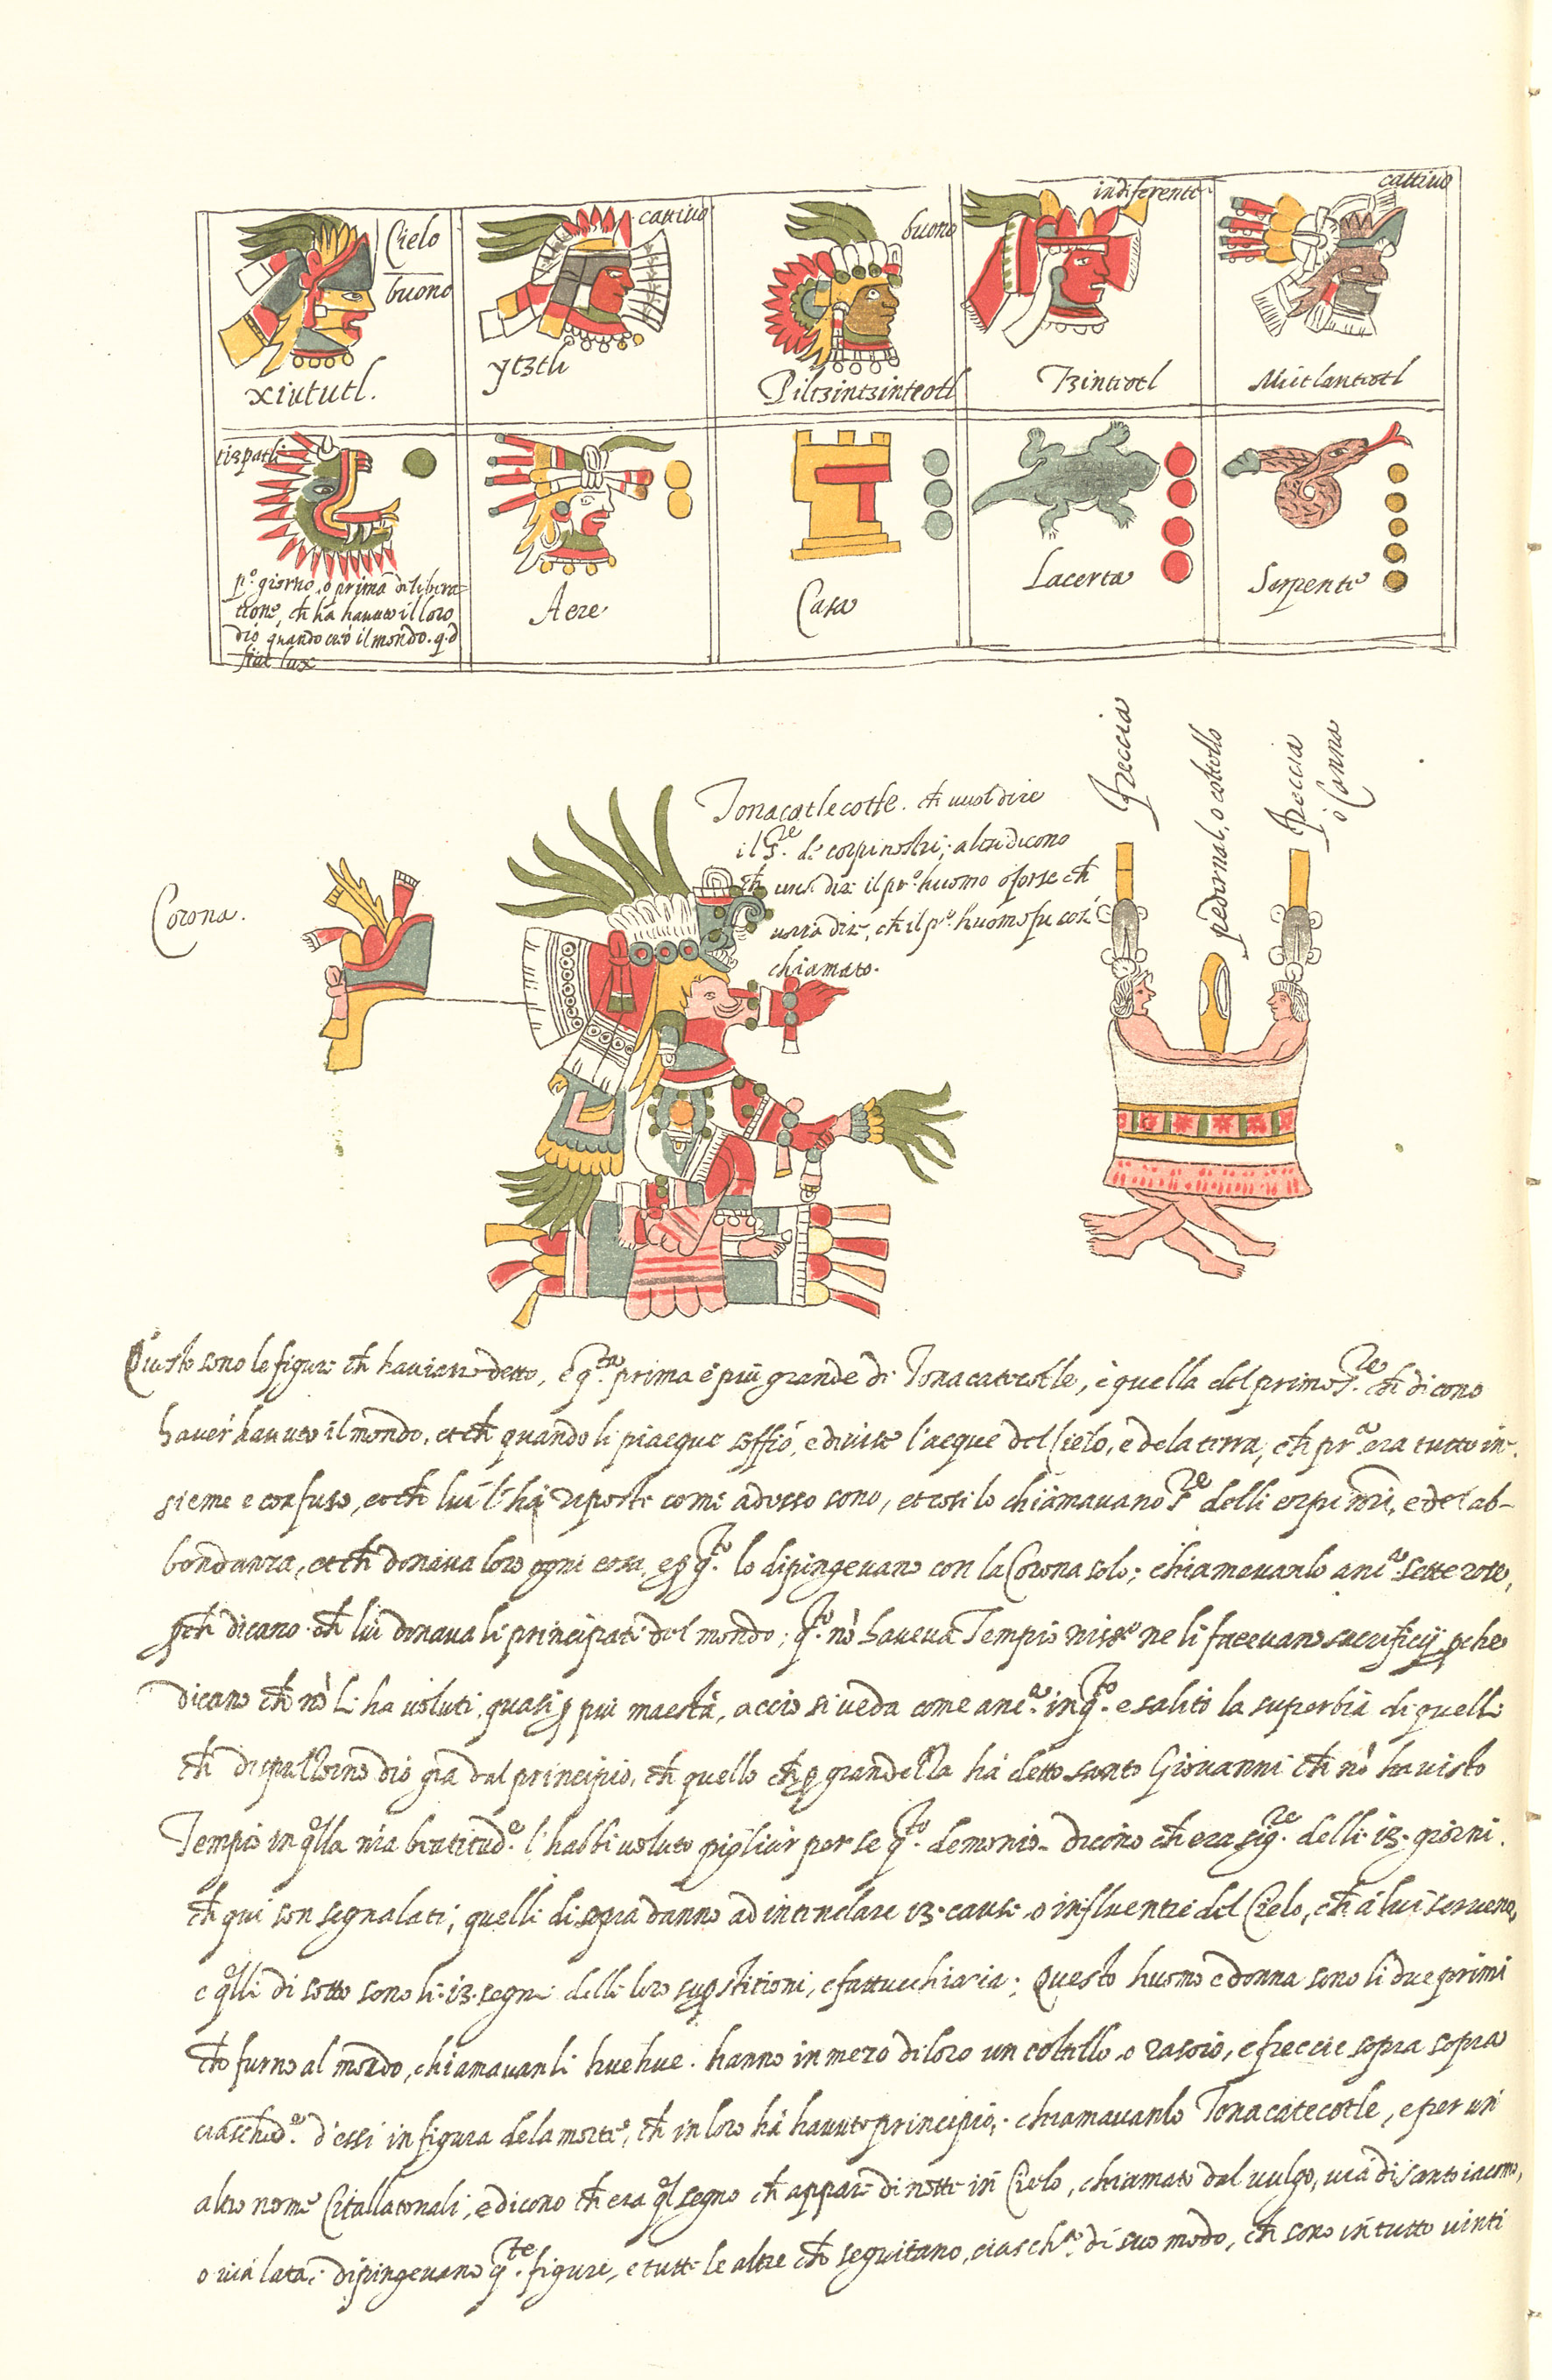 Cielo
buono
xiututl.
cattiuo
ytztli
buono
Piltzintzinteotl
indiferente
Tzinteotl
cattiuo
Mictlanteotl
tizpatli
p.º giorno, o prima delibera-
tione, ch ha hauuto il loro
dio quando creò il mondo. q.d
fiat lux
Aere
Casa
Lacerta
Serpente
Corona.
Tonacatlecotle. ch vuol dire
il S.re de corpi nostri; altri dicono
ch uuol dir il pr.º huomo o forse ch
uorrà dire, ch il p.º huomo fu così
chiamato.
freccia
pedernal, o coltello
freccia
o Canna
Queste sono le figure ch hauiamo detto, e q.ta prima e più grande di Tonacatecotle, è quella del primo S.re ch dicono
hauer hauuto il mondo, et ch quando li piacque soffiò, e diuise l'acque del Cielo, e de la terra, ch pr.a era tutto in-
sieme e confuso, et ch lui l'hà disposte come adesso sono, et cosi lo chiamauano S.re delli corpi nr̃i, e del ab-
bondanza, et ch donaua loro ogni cosa, e p q.to lo dipingevano con la Corona solo; chiamauanlo anc.a sette rose,
pch dicano ch lui donaua li principati del mondo; q.to nò haueua Tempio niss.o ne li faceuano sacrificij pche
dicano ch nò li ha voluti, quasi p più maestà, accio si veda come anc.a in q.to e salito la superbia di quelli
ch dispallorno dio già dal principio, ch quello ch p grandezza hà detto santo Giovanni ch nò ha visto
Tempio in qlla nr̃a beatitud.e l'habbi voluto pigliar per se q.to demonio. dicono ch era sig.re delli .13. giorni.
ch qui son segnalati; quelli di sopra danno ad intendare 13. cause o influentie del Cielo, ch à lui serueno,
e qlli di sotto sono li .13. segni delle loro supstitioni, e fattucchiaria; Questo huomo e donna sono li due primi
ch furno al mondo, chiamauanli huehue. hanno in mezo di loro un coltello o rasoio, e freccie sopra sopra
ciasched.o d'essi in figura de la morte, ch in loro hà hauuto principio; chiamauanlo Tonacatecotle, e per un
altro nome Citallatonali, e dicono ch era ql segno ch appare di notte in Cielo, chiamato dal vulgo, via di santo iacomo,
o via lata; dipingeuano q.te figure, e tutte le altre ch seguitano, ciasch.a di suo modo, ch sono in tutto vinti